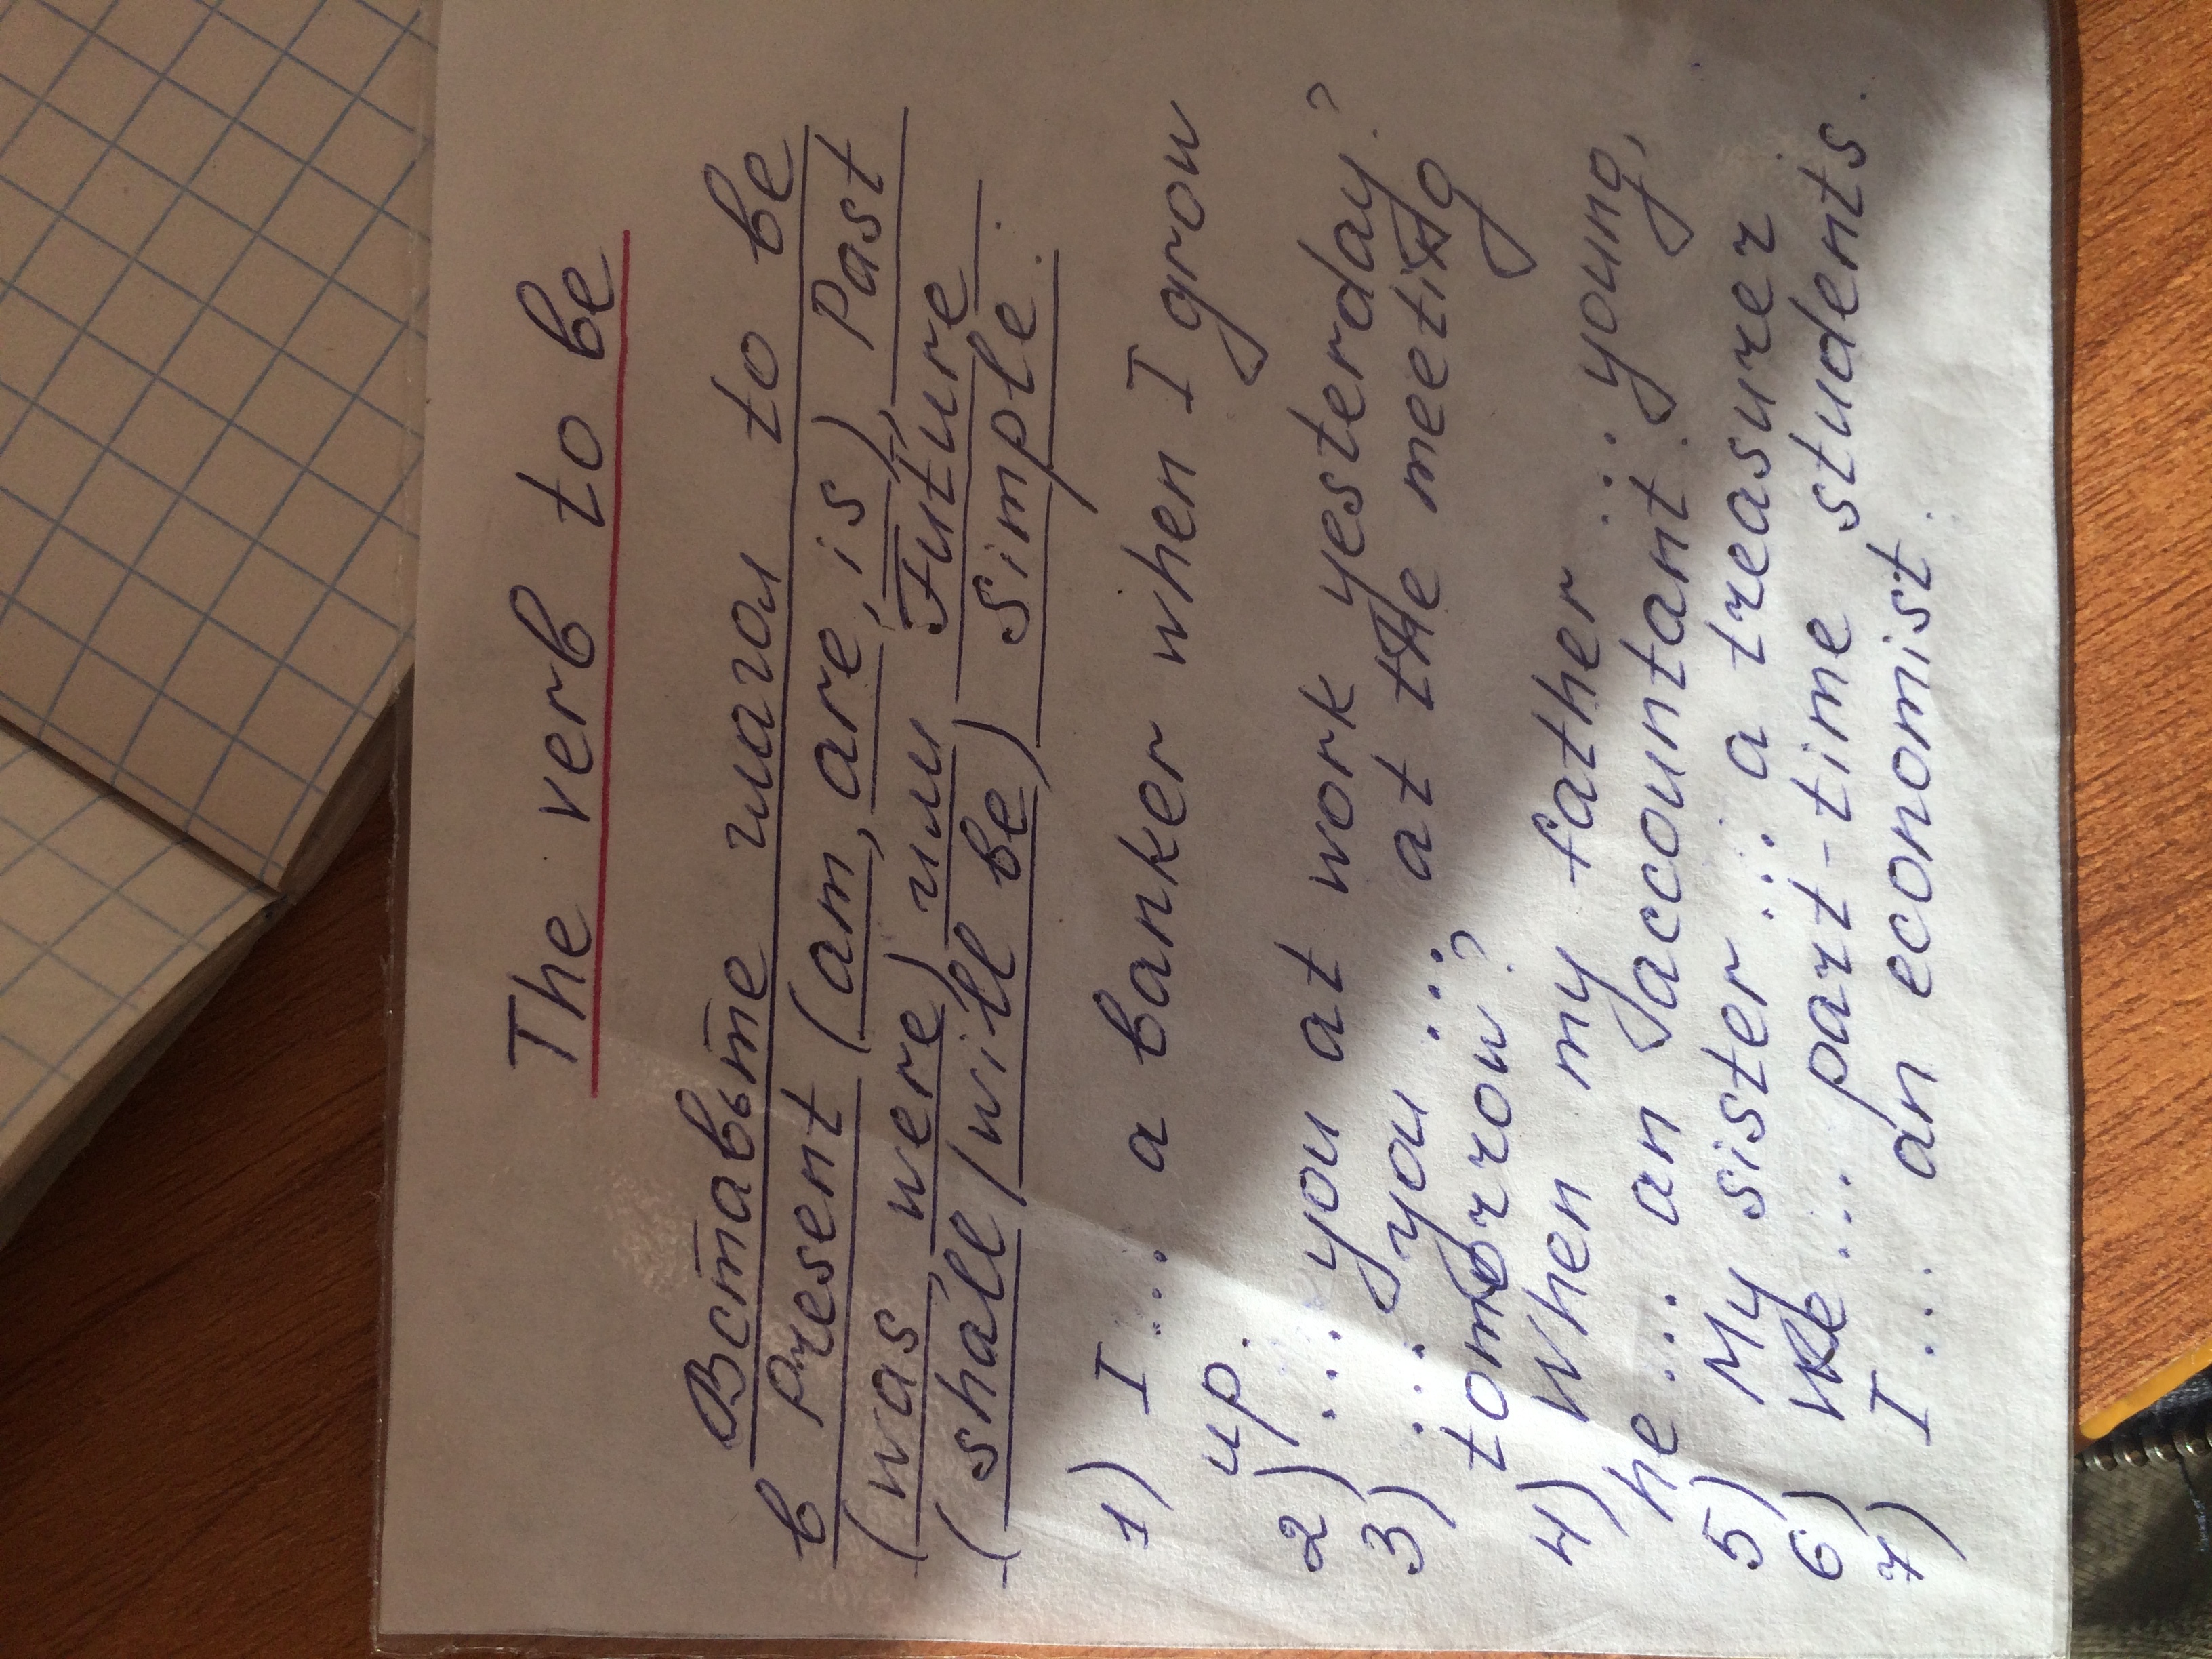 The verb to be
Вставьте глагол to be
в Present (am, are, is), Past
(was, were) или Future
(shall/will be) Simple.
1) I ... a banker when I grow
up.
2) ... you at work yesterday?
3) ... you ... at the meeting
tomorrow?
4) When my father ... young,
he ... an accountant.
5) My sister ... a treasurer
6) We ... part-time students.
7) I ... an economist.